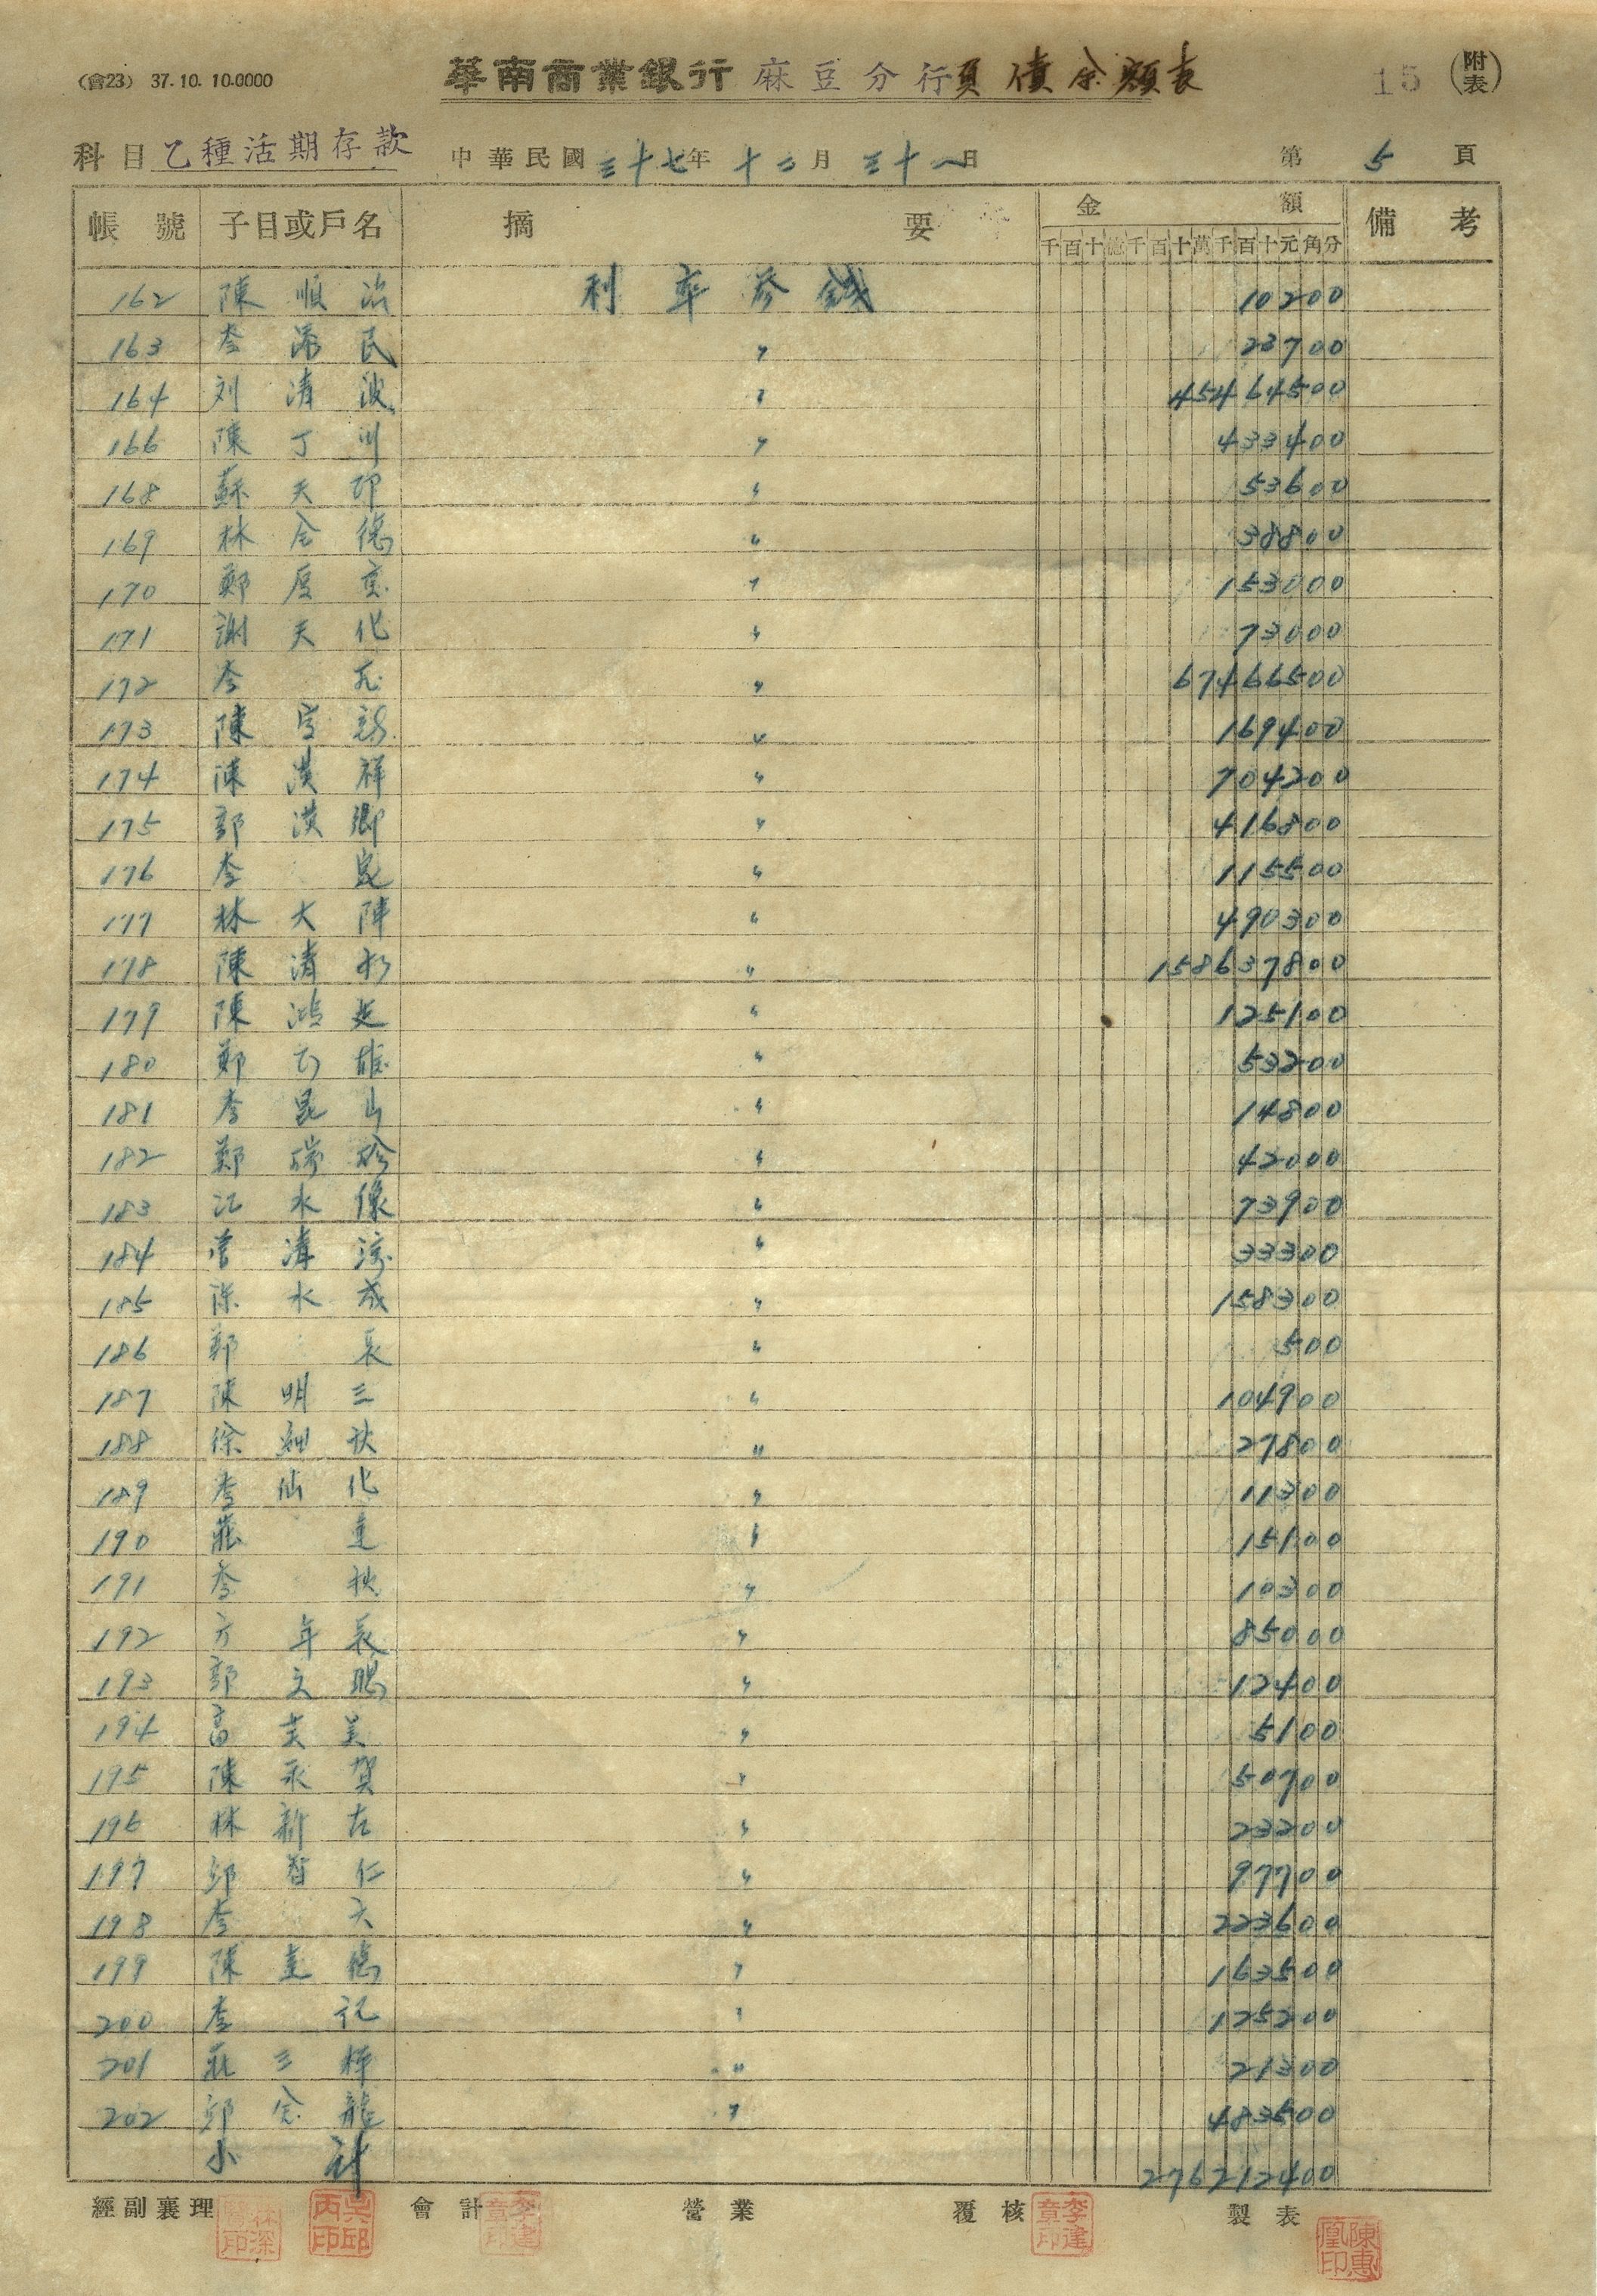 (會23) 37.10.10.0000
華南商業銀行 麻豆分行負債余額表
15 (附表)
科目 乙種活期存款 中華民國三十七年十二月三十一日 第5頁
帳號 子目或戶名 摘要 金額 備考
千百十億千百十萬千百十元角分
162 陳順治 利率參錢 10200
163 李添民 〃 23700
164 刘清波 〃 45464500
166 陳丁川 〃 433400
168 蘇天印 〃 53600
169 林金德 〃 38800
170 鄭 〃 153000
171 謝天化 〃 73000
172 李 〃 67466500
173 陳 〃 169400
174 陳漢祥 〃 704200
175 郭漢卿 〃 416800
176 李崑 〃 115500
177 林大陣 〃 490300
178 陳清 〃 158637800
179 陳鴻 〃 125100
180 鄭 雄 〃 53200
181 李昆山 〃 14800
182 鄭瑞珍 〃 42000
183 江水像 〃 73900
184 曾清 〃 33300
185 陳水成 〃 158300
186 鄭長 〃 500
187 陳明三 〃 104900
188 徐 〃 27800
189 李仙化 〃 11300
190 莊 〃 15100
191 李秋 〃 10300
192 方年長 〃 85000
193 郭文聰 〃 12400
194 高 〃 5100
195 陳永賀 〃 50700
196 林新在 〃 23200
197 邱智仁 〃 97700
198 李天 〃 223600
199 陳 德 〃 163500
200 李記 〃 125200
201 莊三 〃 21300
202 邱金龍 〃 483500
小計 276212400
經副襄理 會計 營業 覆核 製表
林深醫印 吳邱丙印 李建章印 李建章印 陳惠凰印